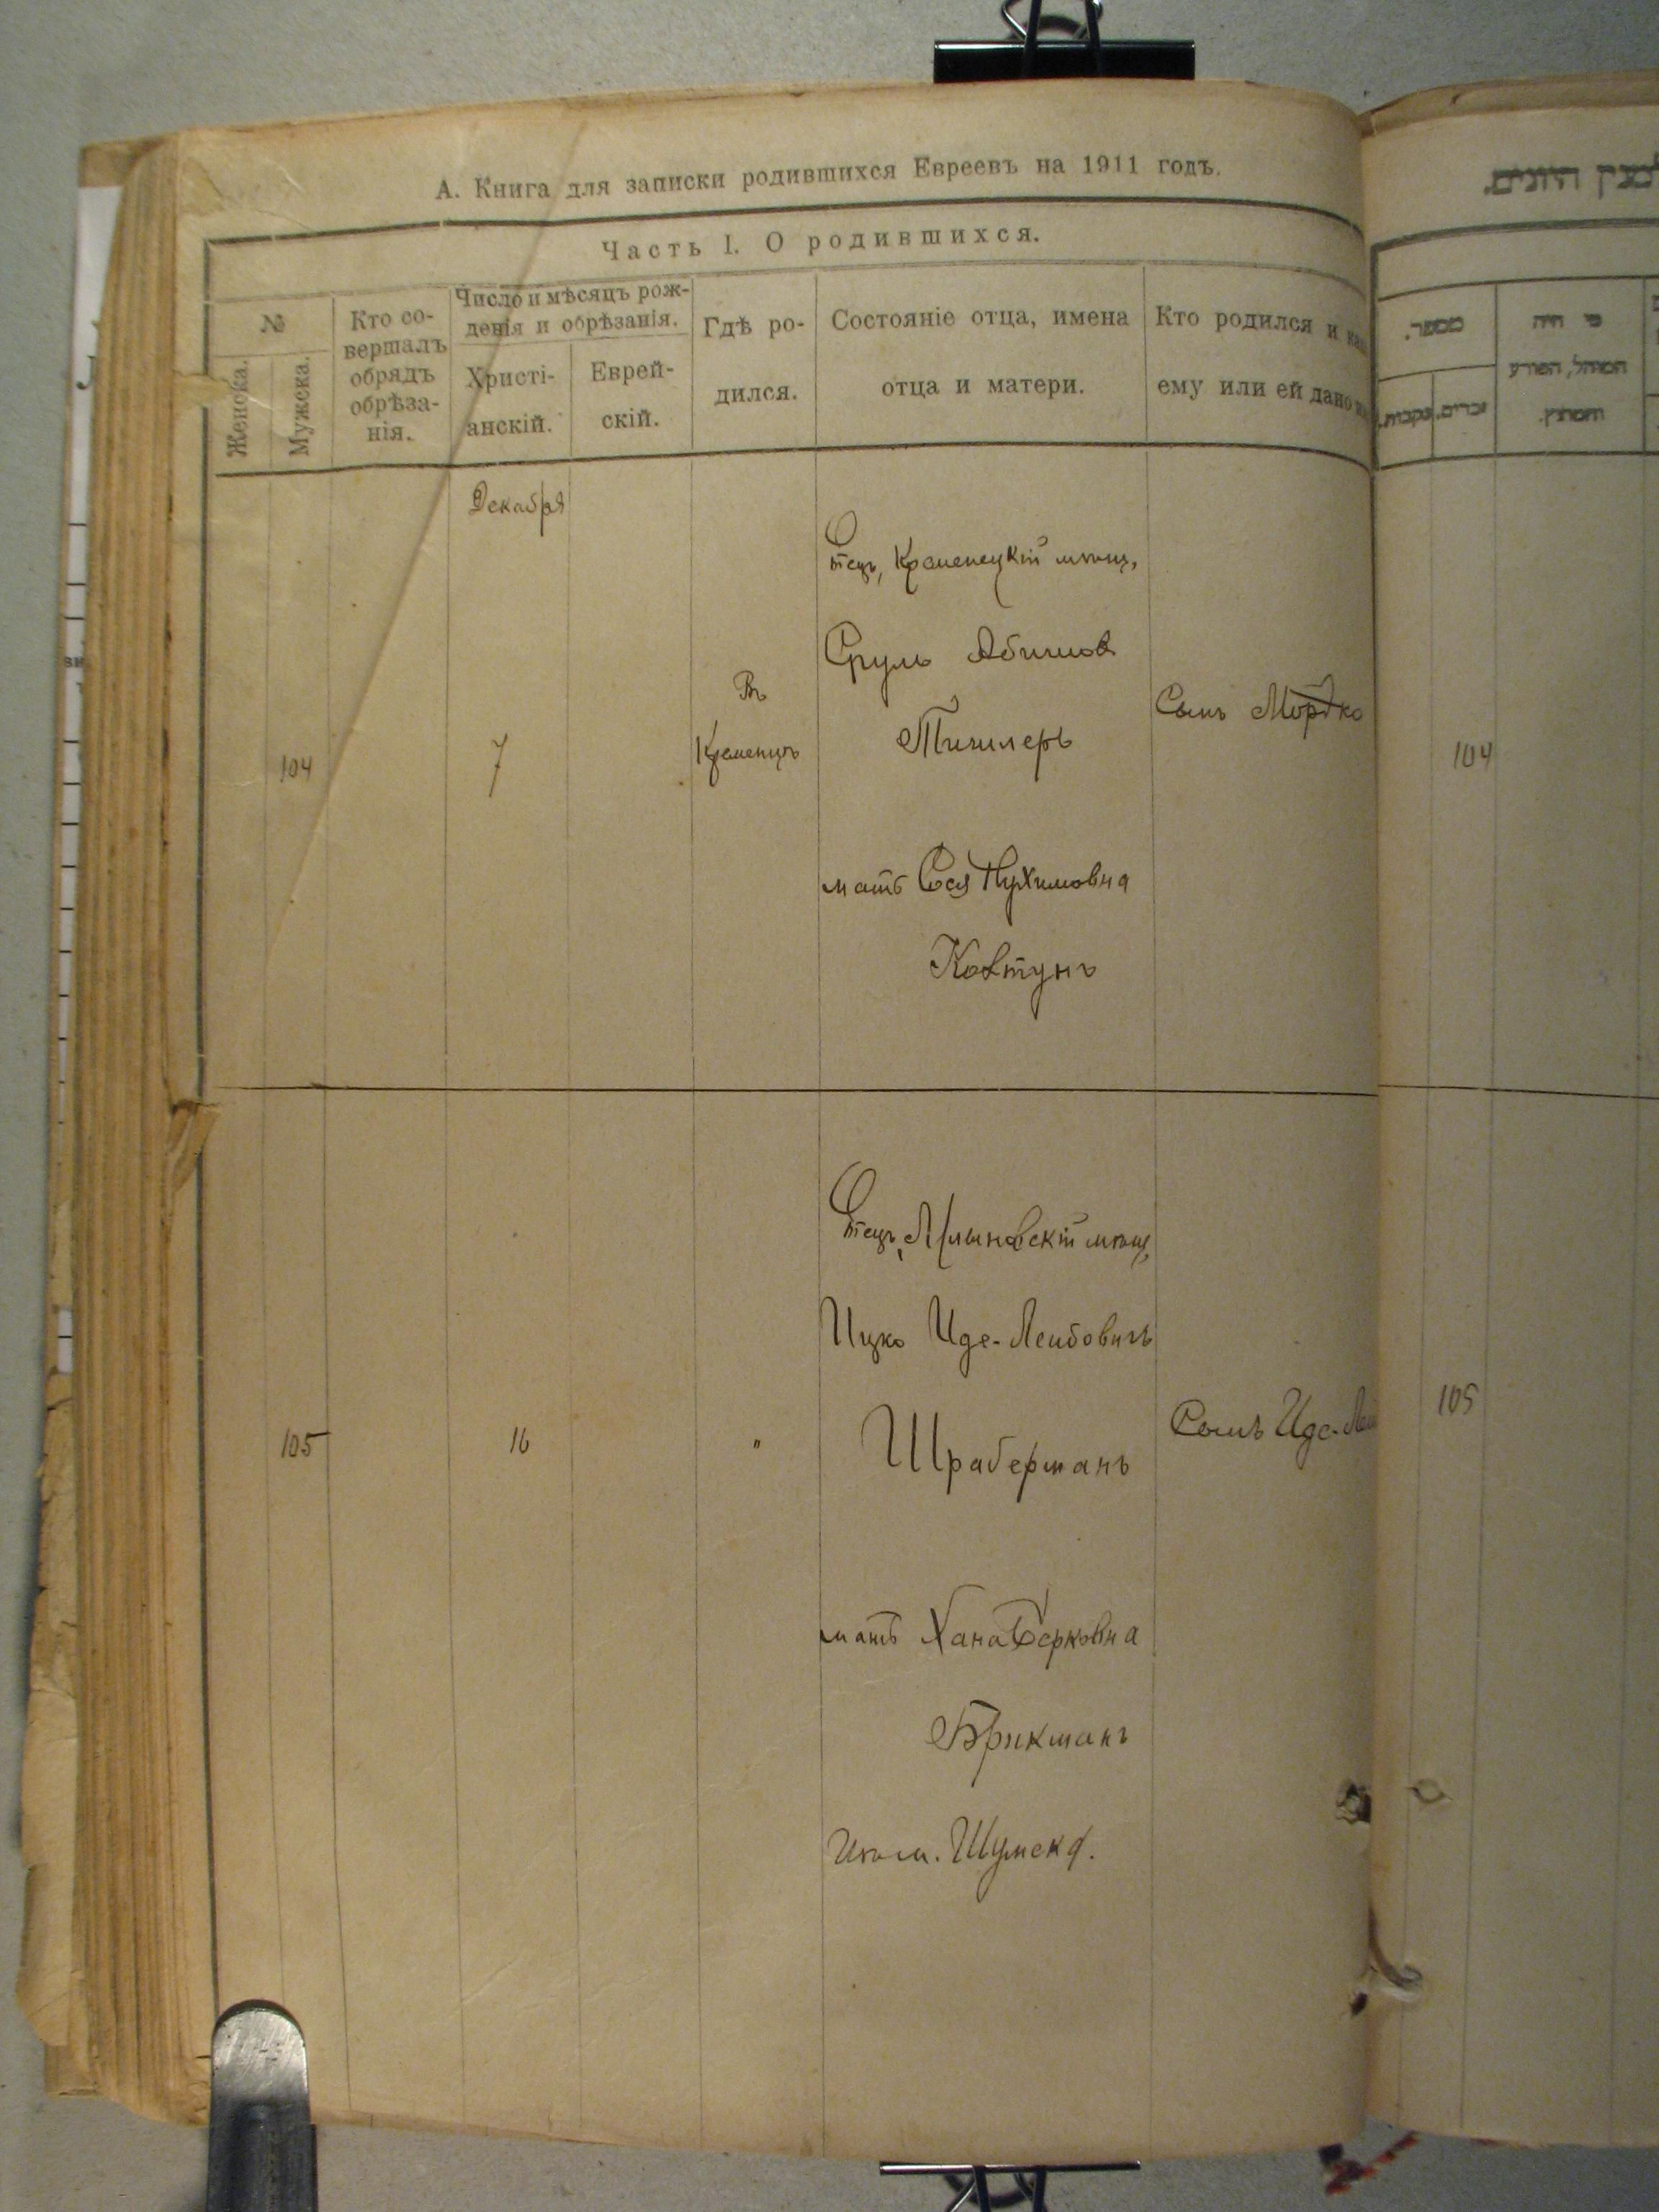 А. Книга для записки родившихся Евреевъ на 1911 годъ.
Часть I. О родившихся.
№
Женска.
Мужеска.
Кто со-
вершалъ
обрядъ
обрѣза-
нія.
Число и мѣсяцъ рож-
денія и обрѣзанія.
Христі-
анскій.
Еврей-
скій.
Гдѣ ро-
дился.
Состояніе отца, имена
отца и матери.
Кто родился и
ему или ей дано
Декабря
104
7
Въ
Кременцѣ
Отецъ, Кременецкій мѣщ,
Сруль
Тишлеръ
мать Сося Нухимовна
Ковтунъ
Сынъ Мордко
105
16
"
Отецъ, Млыновскій мѣщ,
Ицко Иде-Лейбовичъ
Шраберманъ
мать Хана Берковна
Брикманъ
Шумска.
Сынъ Иде-
מספר.
זכרים.
נקבות.
מי היה
המוהל, הפורע
והמוצץ.
104
105